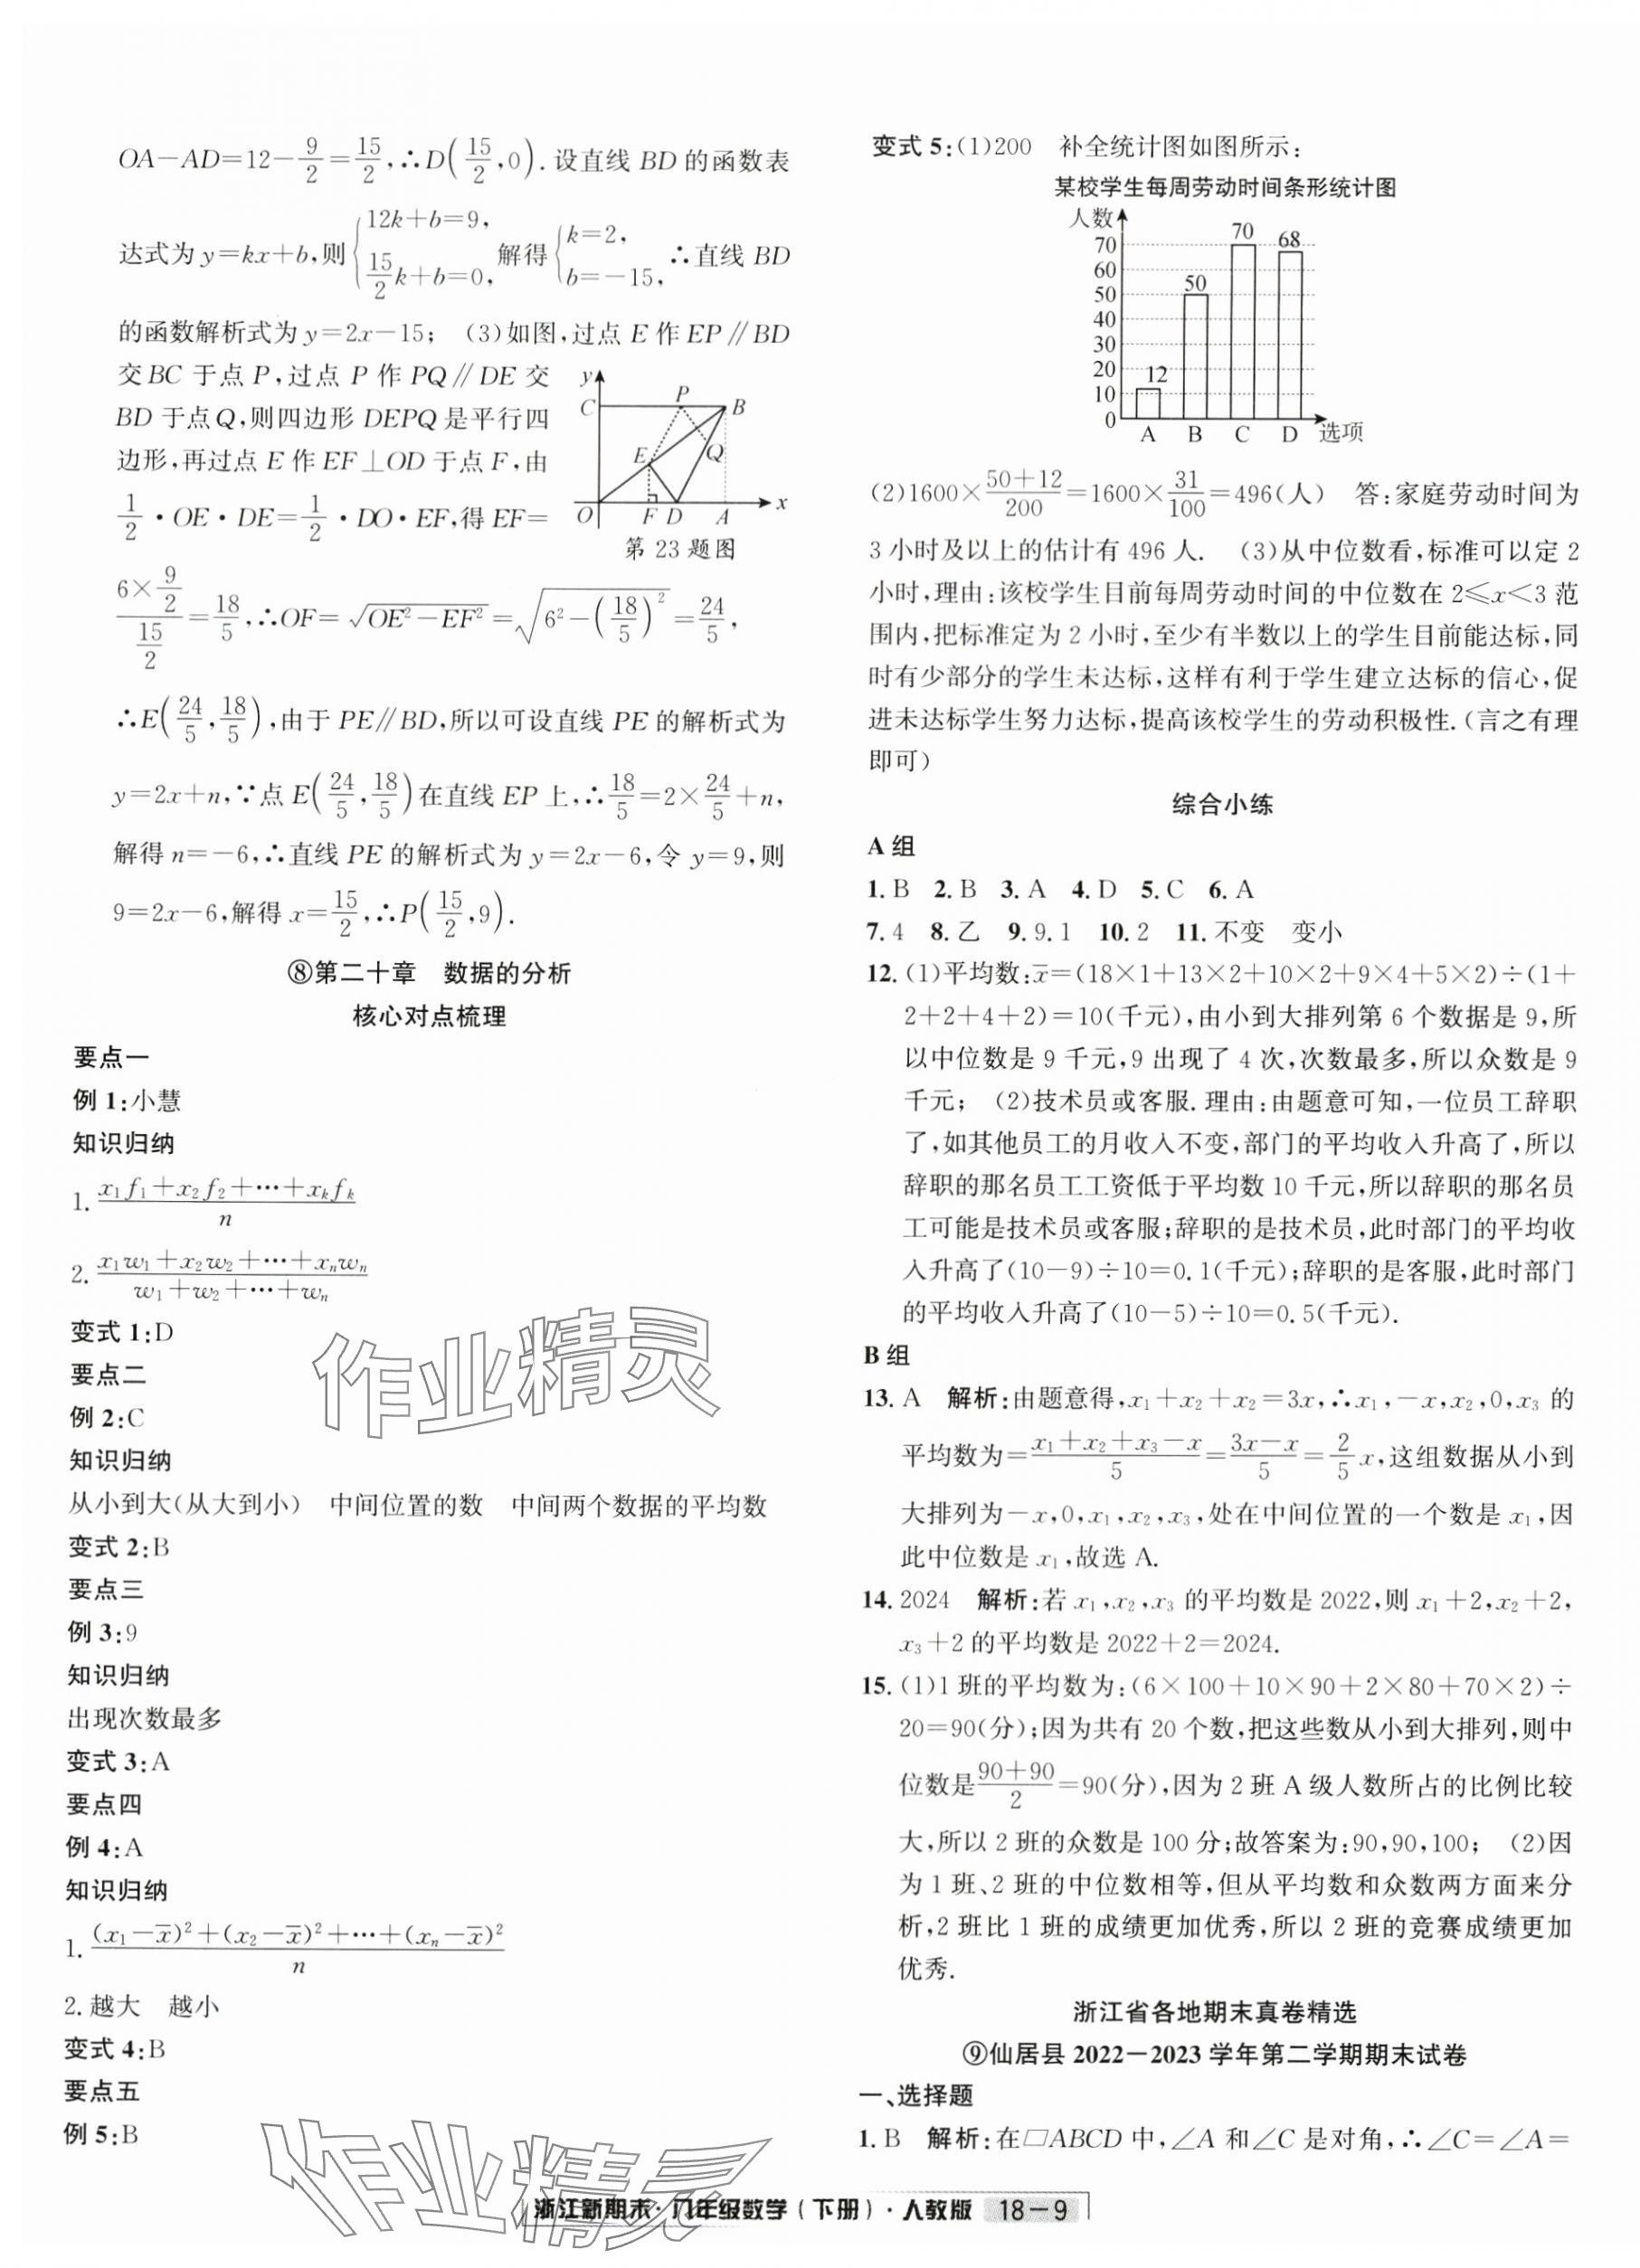 OA－AD＝12－9/2＝15/2，∴D(15/2，0)．设直线 BD 的函数表
达式为 y＝kx＋b，则{12k＋b＝9，15/2k＋b＝0，解得{k＝2，b＝－15，∴直线 BD
的函数解析式为 y＝2x－15； (3)如图，过点 E 作 EP∥BD
交 BC 于点 P，过点 P 作 PQ∥DE 交
BD 于点 Q，则四边形 DEPQ 是平行四
边形，再过点 E 作 EF⊥OD 于点 F，由
1/2・OE・DE＝1/2・DO・EF，得 EF＝
y
C
P
B
E
Q
O
F D
A
x
第 23 题图
(6×9/2)/(15/2)＝18/5，∴OF＝√(OE²－EF²)＝√(6²－(18/5)²)＝24/5，
∴E(24/5，18/5)，由于 PE∥BD，所以可设直线 PE 的解析式为
y＝2x＋n，∵点 E(24/5，18/5)在直线 EP 上，∴18/5＝2×24/5＋n，
解得 n＝－6，∴直线 PE 的解析式为 y＝2x－6，令 y＝9，则
9＝2x－6，解得 x＝15/2，∴P(15/2，9)．
⑧第二十章 数据的分析
核心对点梳理
要点一
例 1：小慧
知识归纳
1. (x₁f₁＋x₂f₂＋⋯＋xₖfₖ)/n
2. (x₁w₁＋x₂w₂＋⋯＋xₙwₙ)/(w₁＋w₂＋⋯＋wₙ)
变式 1：D
要点二
例 2：C
知识归纳
从小到大(从大到小) 中间位置的数 中间两个数据的平均数
变式 2：B
要点三
例 3：9
知识归纳
出现次数最多
变式 3：A
要点四
例 4：A
知识归纳
1. ((x₁－x̄)²＋(x₂－x̄)²＋⋯＋(xₙ－x̄)²)/n
2. 越大 越小
变式 4：B
要点五
例 5：B
变式 5：(1)200 补全统计图如图所示：
某校学生每周劳动时间条形统计图
人数
70
60
50
40
30
20
10
0
12
50
70
68
A B C D 选项
(2)1600×(50＋12)/200＝1600×31/100＝496(人) 答：家庭劳动时间为
3 小时及以上的估计有 496 人． (3)从中位数看，标准可以定 2
小时，理由：该校学生目前每周劳动时间的中位数在 2≤x＜3 范
围内，把标准定为 2 小时，至少有半数以上的学生目前能达标，同
时有少部分的学生未达标，这样有利于学生建立达标的信心，促
进未达标学生努力达标，提高该校学生的劳动积极性．(言之有理
即可)
综合小练
A 组
1. B 2. B 3. A 4. D 5. C 6. A
7. 4 8. 乙 9. 9.1 10. 2 11. 不变 变小
12. (1)平均数：x̄＝(18×1＋13×2＋10×2＋9×4＋5×2)÷(1＋
2＋2＋4＋2)＝10(千元)，由小到大排列第 6 个数据是 9，所
以中位数是 9 千元，9 出现了 4 次，次数最多，所以众数是 9
千元； (2)技术员或客服．理由：由题意可知，一位员工辞职
了，如其他员工的月收入不变，部门的平均收入升高了，所以
辞职的那名员工工资低于平均数 10 千元，所以辞职的那名员
工可能是技术员或客服；辞职的是技术员，此时部门的平均收
入升高了(10－9)÷10＝0.1(千元)；辞职的是客服，此时部门
的平均收入升高了(10－5)÷10＝0.5(千元)．
B 组
13. A 解析：由题意得，x₁＋x₂＋x₂＝3x，∴x₁，－x，x₂，0，x₃ 的
平均数为＝(x₁＋x₂＋x₃－x)/5＝(3x－x)/5＝2/5x，这组数据从小到
大排列为－x，0，x₁，x₂，x₃，处在中间位置的一个数是 x₁，因
此中位数是 x₁，故选 A.
14. 2024 解析：若 x₁，x₂，x₃ 的平均数是 2022，则 x₁＋2，x₂＋2，
x₃＋2 的平均数是 2022＋2＝2024.
15. (1)1 班的平均数为：(6×100＋10×90＋2×80＋70×2)÷
20＝90(分)；因为共有 20 个数，把这些数从小到大排列，则中
位数是(90＋90)/2＝90(分)，因为 2 班 A 级人数所占的比例比较
大，所以 2 班的众数是 100 分；故答案为：90，90，100； (2)因
为 1 班、2 班的中位数相等，但从平均数和众数两方面来分
析，2 班比 1 班的成绩更加优秀，所以 2 班的竞赛成绩更加
优秀．
浙江省各地期末真卷精选
⑨仙居县 2022－2023 学年第二学期期末试卷
一、选择题
1. B 解析：在▱ABCD 中，∠A 和∠C 是对角，∴∠C＝∠A＝
浙江新期末・八年级数学（下册）・人教版 18－9
作业精灵
作业精灵